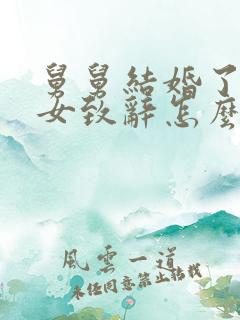 舅舅結婚了
女致辭怎麼
風雲一道
未經同意禁止轉載